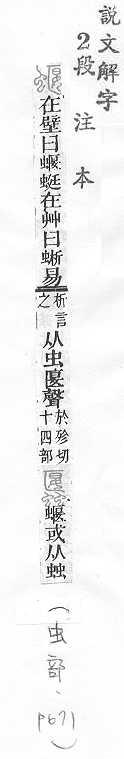 説文解字
2段注本
蝘在壁曰蝘蜓在艸曰蜥易析言之从虫匽聲於殄切十四部𧕁蝘或从䖵
(虫部、p671)